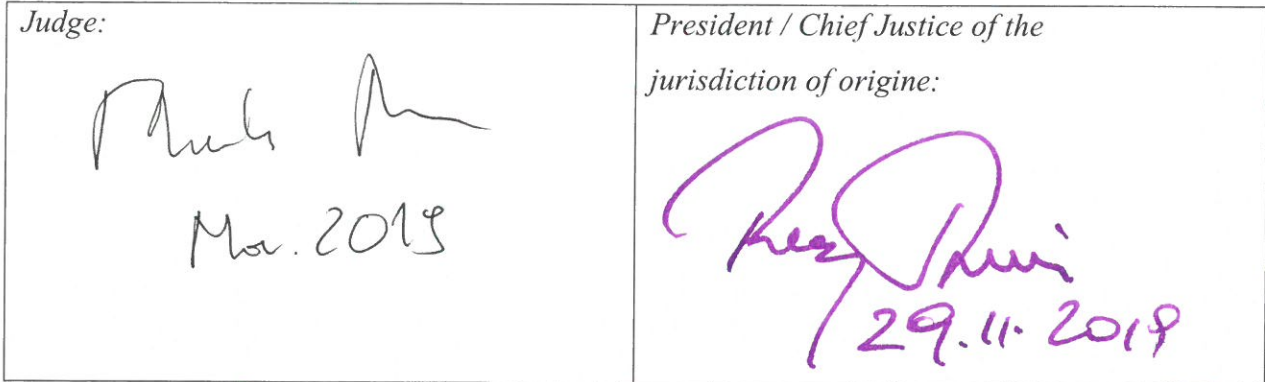 Judge:
Nov. 2019
President / Chief Justice of the
jurisdiction of origine:
29.11.2019